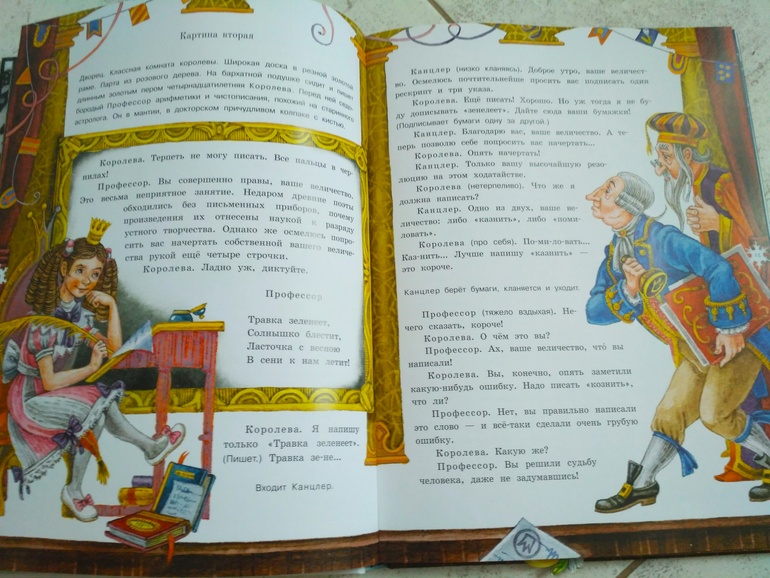 Картина вторая
Дворец. Классная комната королевы. Широкая доска в резной золотой
раме. Парта из розового дерева. На бархатной подушке сидит и пишет
длинным золотым пером четырнадцатилетняя Королева. Перед ней седо-
бородый Профессор арифметики и чистописания, похожий на старинного
астролога. Он в мантии, в докторском причудливом колпаке с кистью.
Королева. Терпеть не могу писать. Все пальцы в чер-
нилах!
Профессор. Вы совершенно правы, ваше величество.
Это весьма неприятное занятие. Недаром древние поэты
обходились без письменных приборов, почему
произведения их отнесены наукой к разряду
устного творчества. Однако же осмелюсь попро-
сить вас начертать собственной вашего величе-
ства рукой ещё четыре строчки.
Королева. Ладно уж, диктуйте.
Профессор
Травка зеленеет,
Солнышко блестит,
Ласточка с весною
В сени к нам летит!
Королева. Я напишу
только «Травка зеленеет».
(Пишет.) Травка зе-не...
Входит Канцлер.
Канцлер (низко кланяясь). Доброе утро, ваше величест-
во. Осмелюсь почтительнейше просить вас подписать один
рескрипт и три указа.
Королева. Ещё писать! Хорошо. Но уж тогда я не бу-
ду дописывать «зенелеет». Дайте сюда ваши бумажки!
(Подписывает бумаги одну за другой.)
Канцлер. Благодарю вас, ваше величество. А те-
перь позволю себе попросить вас начертать...
Королева. Опять начертать!
Канцлер. Только вашу высочайшую резо-
люцию на этом ходатайстве.
Королева (нетерпеливо). Что же я
должна написать?
Канцлер. Одно из двух, ваше ве-
личество: либо «казнить», либо «поми-
ловать».
Королева (про себя). По-ми-ло-вать...
Каз-нить... Лучше напишу «казнить» —
это короче.
Канцлер берёт бумаги, кланяется и уходит.
Профессор (тяжело вздыхая). Не-
чего сказать, короче!
Королева. О чём это вы?
Профессор. Ах, ваше величество, что́ вы
написали!
Королева. Вы, конечно, опять заметили
какую-нибудь ошибку. Надо писать «кознить»,
что ли?
Профессор. Нет, вы правильно написали
это слово — и всё-таки сделали очень грубую
ошибку.
Королева. Какую же?
Профессор. Вы решили судьбу
человека, даже не задумавшись!